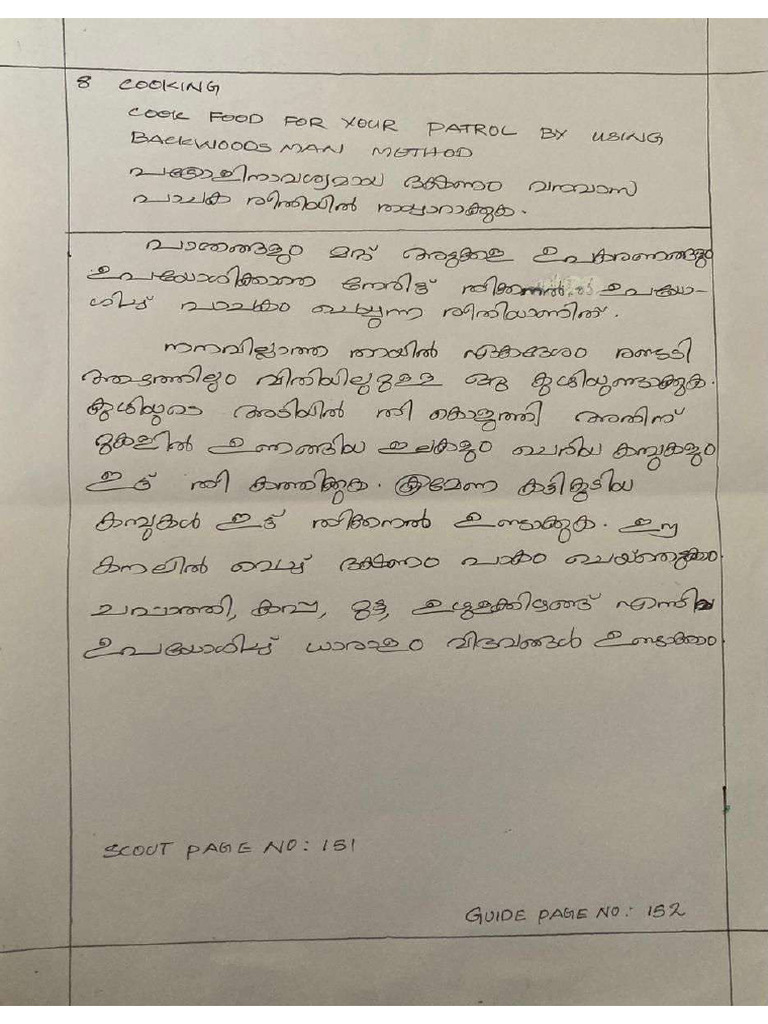 8 COOKING
COOK FOOD FOR YOUR PATROL BY USING
BACKWOODSMAN METHOD
പട്രോളിനാവശ്യമായ ഭക്ഷണം വനവാസ
പാചക രീതിയിൽ തയ്യാറാക്കുക.
പാത്രങ്ങളും മറ്റ് അടുക്കള ഉപകരണങ്ങളും
ഉപയോഗിക്കാതെ നേരിട്ട് തീക്കനൽ ഉപയോ-
ഗിച്ച് പാചകം ചെയ്യുന്ന രീതിയാണിത്.
നനവില്ലാത്ത തറയിൽ ഏകദേശം രണ്ടടി
ആഴത്തിലും വീതിയിലുമുള്ള ഒരു കുഴിയുണ്ടാക്കുക.
കുഴിയുടെ അടിയിൽ തീ കൊളുത്തി അതിന്
മുകളിൽ ഉണങ്ങിയ ഇലകളും ചെറിയ കമ്പുകളും
ഇട്ട് തീ കത്തിക്കുക. ക്രമേണ കട്ടികൂടിയ
കമ്പുകൾ ഇട്ട് തീക്കനൽ ഉണ്ടാക്കുക. ഈ
കനലിൽ വെച്ച് ഭക്ഷണം പാകം ചെയ്തെടുക്കാം.
ചപ്പാത്തി, കപ്പ, മുട്ട, ഉരുളക്കിഴങ്ങ് എന്നിവ
ഉപയോഗിച്ച് ധാരാളം വിഭവങ്ങൾ ഉണ്ടാക്കാം.
SCOUT PAGE NO: 151
GUIDE PAGE NO: 152